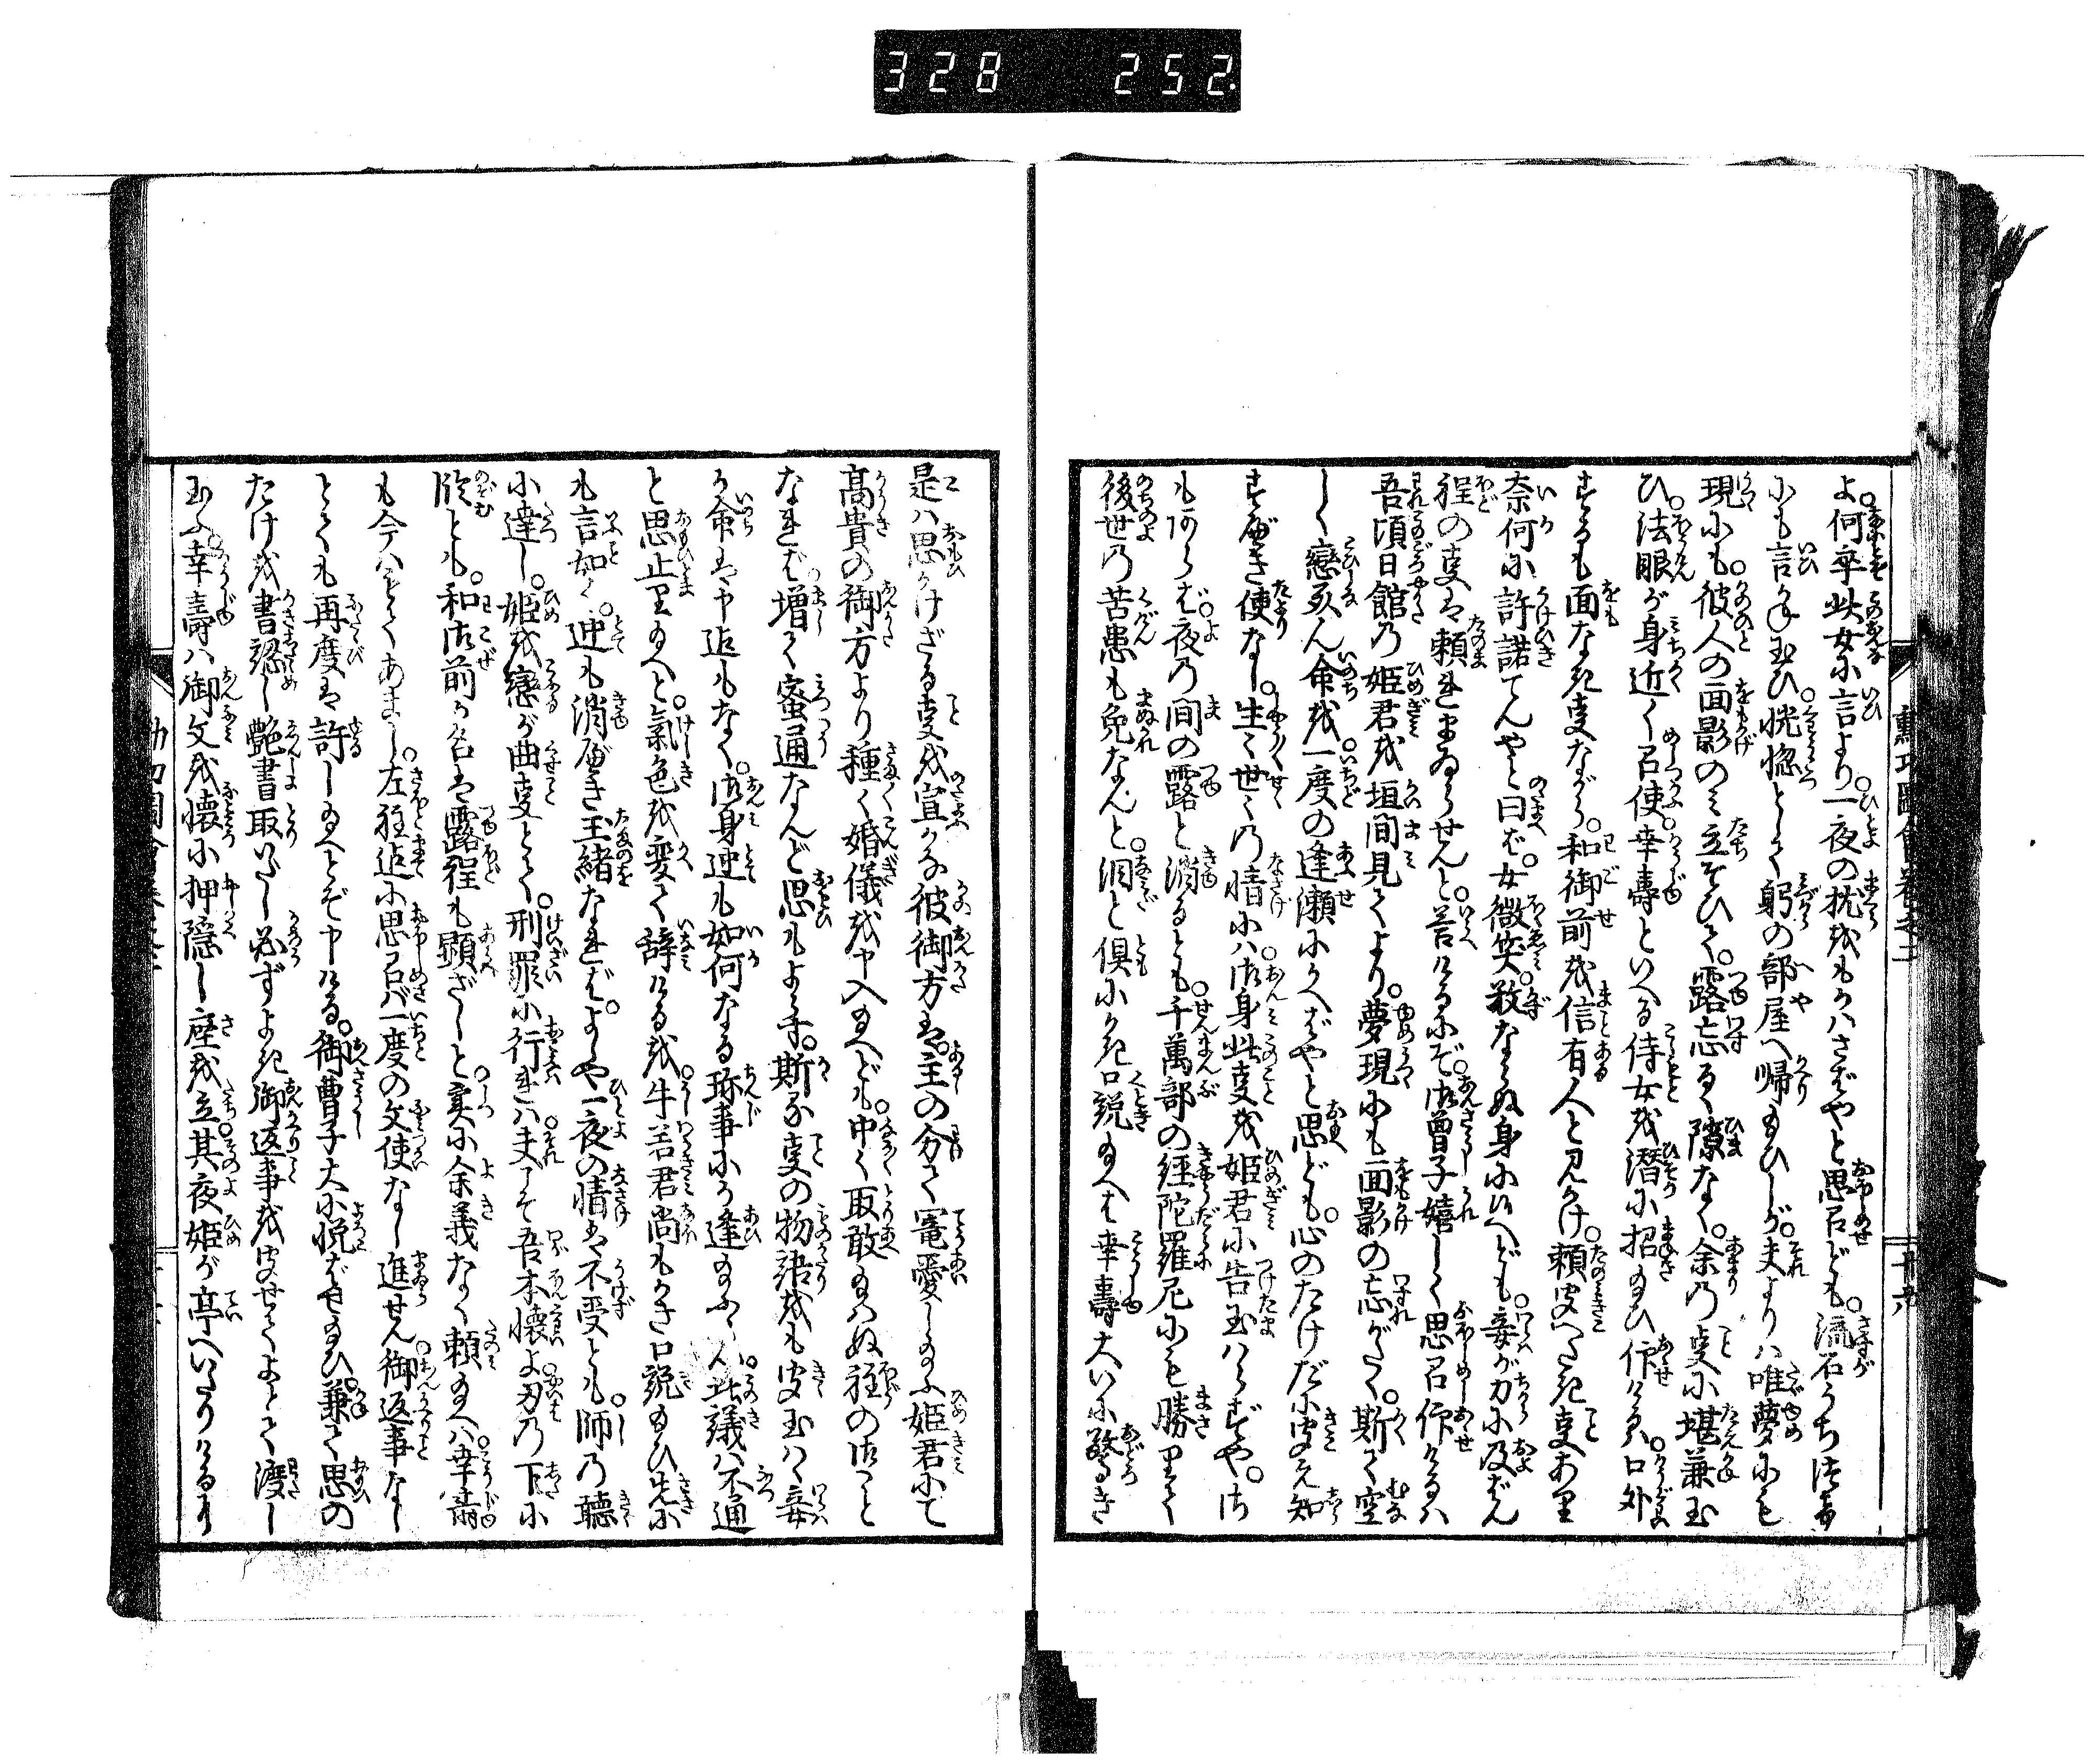 328 252
よ。何卒此女に言より。一夜の枕をもかはさばやと思召ども。流石うち
にも言かね玉ひ。恍惚として躬の部屋へ帰給ひしが。夫よりは唯夢にも
現にも。彼人の面影のみ立そひて。露忘るゝ隙なく。余の事に堪兼玉
ひ。法眼が身近く召使。幸壽といへる侍女を潜に招給ひ仰けるは。口外
するも面なき事ながら。和御前を信有人と見かけ。頼聞へたき事あり
奈何に許諾てんやと曰ば。女微笑。数ならぬ身に候へども。妾が力に及ばん
程の事は頼れまゐらせんと。答けるにぞ。御曹子嬉しく思召仰けるは
吾頃日館の姫君を垣間見てより。夢現にも面影の忘がたく。斯て空
しく戀死ん命を。一度の逢瀬にかへばやと思ども。心のたけだに聞え知
すべき便なし。生々世々の情には。御身此事を姫君に告玉はらずや。
もあらば。夜の間の露と消るとも。千萬部の経陀羅尼にも勝りて
後世の苦患も免なんと。泪と倶にかき口説給へば幸壽大いに驚き
是は思かけざる事を宣かな彼御方は。主の分て寵愛し給ふ姫君にて
高貴の御方より種々婚儀を申入給へども。中々取敢給はぬ程の御こと
なれば。増て蜜通なんど思もよらず。斯る事の物語をも聞玉はゞ妾
が命は申迄もなく。御身迚も如何なる珍事にか逢給ふらん。此議は不通
と思止り給へと。氣色を変て辞けるを。牛若君尚もかき口説給ひ先に
も言如く。迚も消べき玉緒なれば。よしや一夜の情は不受とも。師の聴
に達し。姫を戀が曲事とて。刑罪に行れば夫こそ吾本懐よ刃の下に
臥とも。和御前が名は露程も顕さじと。実に余義なく頼給へは。幸壽
も今はとてあまし。左程迄に思召ば一度の文使なし進せん。御返事なし
とても再度は許し給へとぞ申ける。御曹子大に悦ばせ給ひ。兼て思の
たけを書認し艶書取いだし必ずよき御返事を聞せてよとて渡し
玉ふ。幸壽は御文を懐に押隠し座を立。其夜姫が亭へいたりけるに